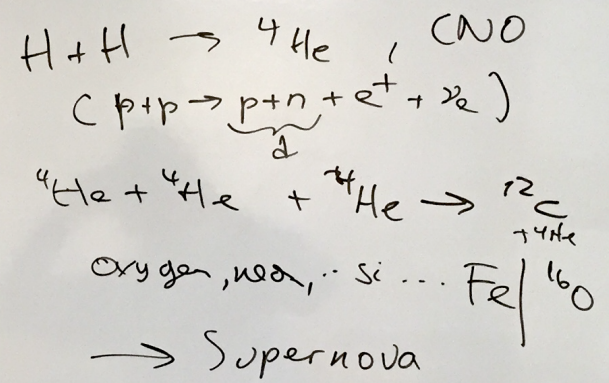 H + H → ⁴He , CNO
( p+p → p+n + e⁺ + νe )
d
⁴He + ⁴He + ⁴He → ¹²C
+ ⁴He
oxygen, neon, ·· si ... Fe | ¹⁶O
→ Supernova